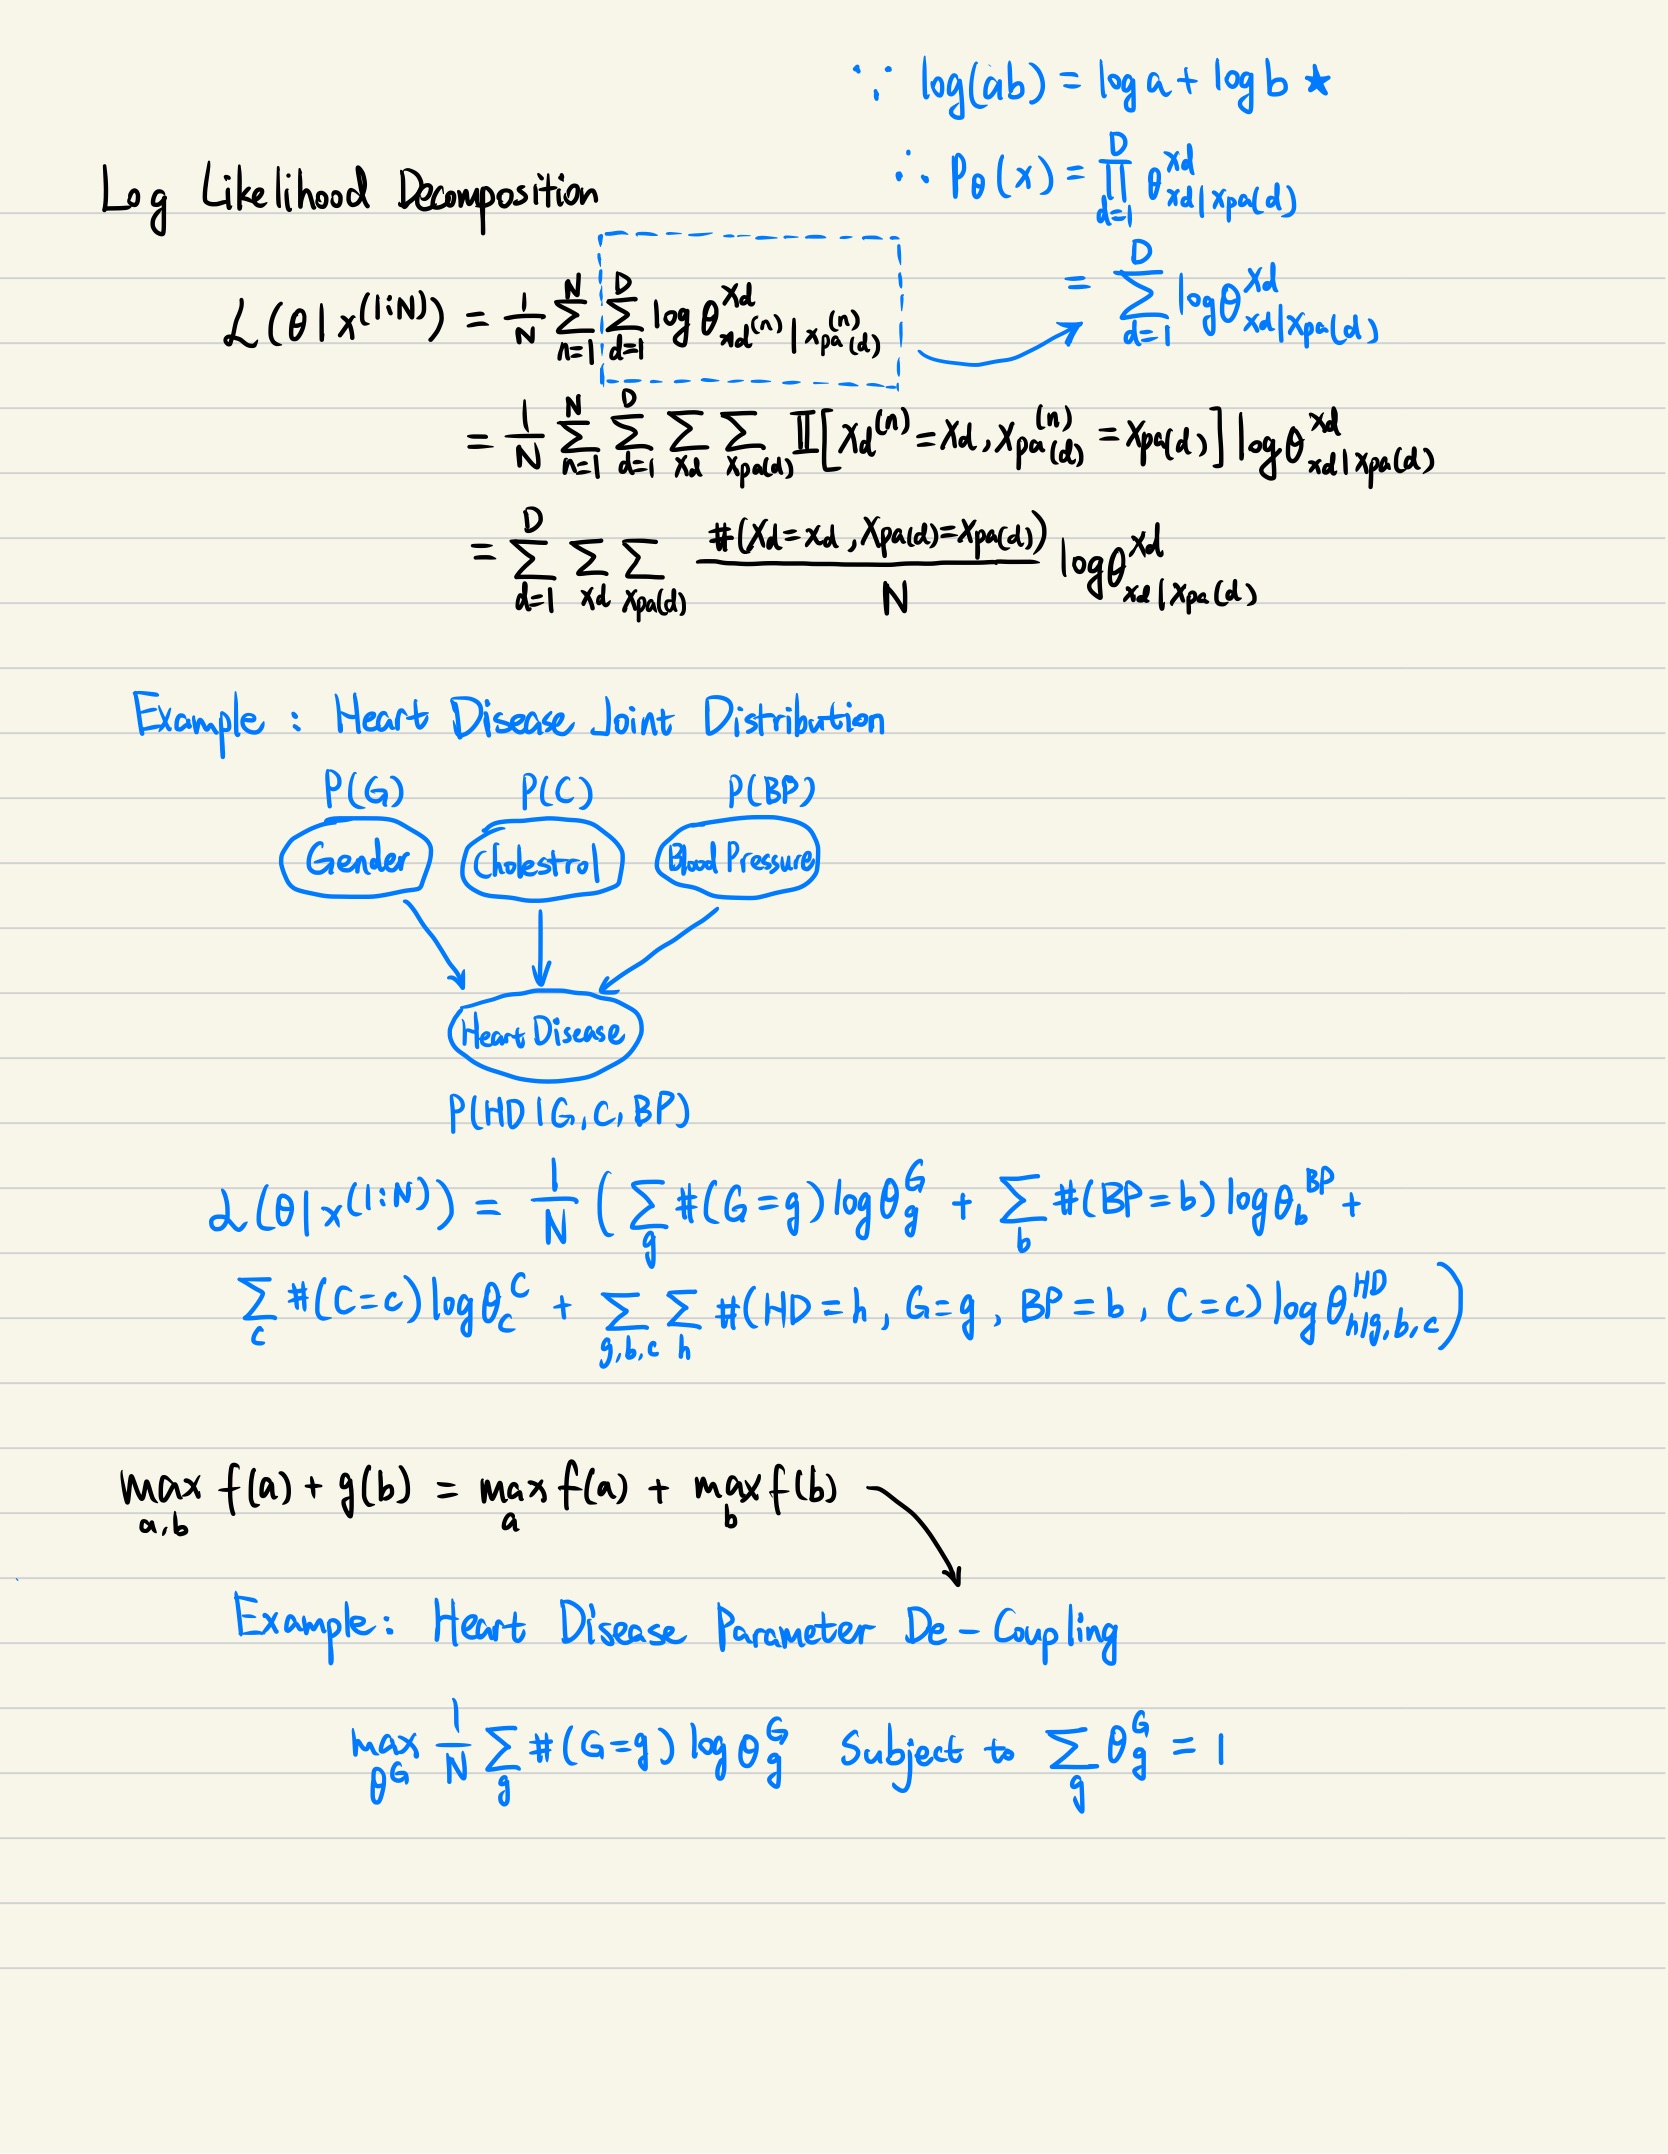 ∵ log(ab) = log a + log b ★
∴ P_θ(x) = ∏_{d=1}^{D} θ^{xd}_{xd|xpa(d)}
Log Likelihood Decomposition
= ∑_{d=1}^{D} logθ^{Xd}_{xd|xpa(d)}
ℒ(θ|x^{(1:N)}) = 1/N ∑_{n=1}^{N} ∑_{d=1}^{D} log θ^{Xd}_{xd^{(n)}|xpa(d)^{(n)}}
= 1/N ∑_{n=1}^{N} ∑_{d=1}^{D} ∑_{xd} ∑_{xpa(d)} 𝕀[xd^{(n)} = xd, xpa(d)^{(n)} = xpa(d)] log θ^{xd}_{xd|xpa(d)}
= ∑_{d=1}^{D} ∑_{xd} ∑_{xpa(d)} #(Xd = xd, Xpa(d) = xpa(d)) / N logθ^{xd}_{xd|xpa(d)}
Example : Heart Disease Joint Distribution
P(G) P(C) P(BP)
Gender Cholestrol Blood Pressure
Heart Disease
P(HD|G, C, BP)
ℒ(θ|x^{(1:N)}) = 1/N ( ∑_{g} #(G = g) log θ_g^G + ∑_{b} #(BP = b) log θ_b^{BP} +
∑_{c} #(C = c) log θ_c^C + ∑_{g,b,c} ∑_{h} #(HD = h, G = g, BP = b, C = c) log θ^{HD}_{h|g,b,c} )
max_{a,b} f(a) + g(b) = max_{a} f(a) + max_{b} f(b)
Example: Heart Disease Parameter De-Coupling
max_{θ^G} 1/N ∑_{g} #(G = g) log θ_g^G Subject to ∑_{g} θ_g^G = 1